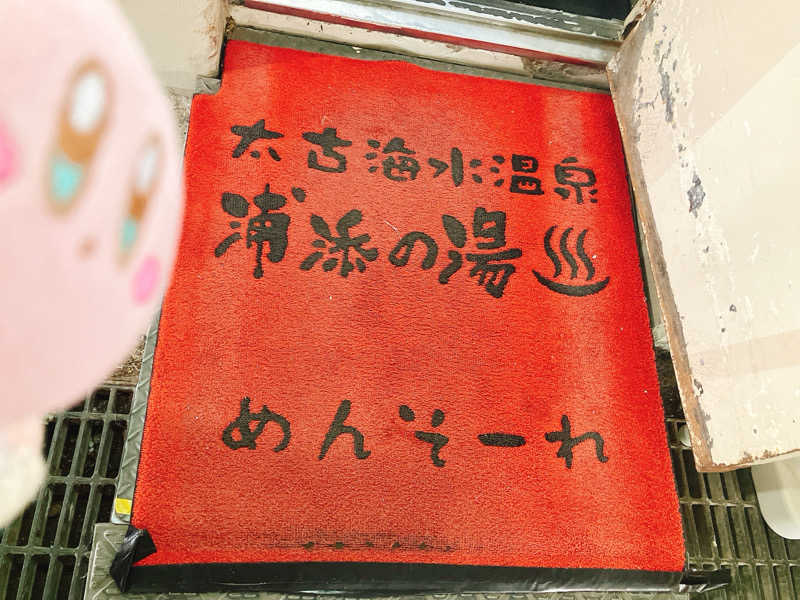 太古海水温泉
浦添の湯♨
めんそーれ